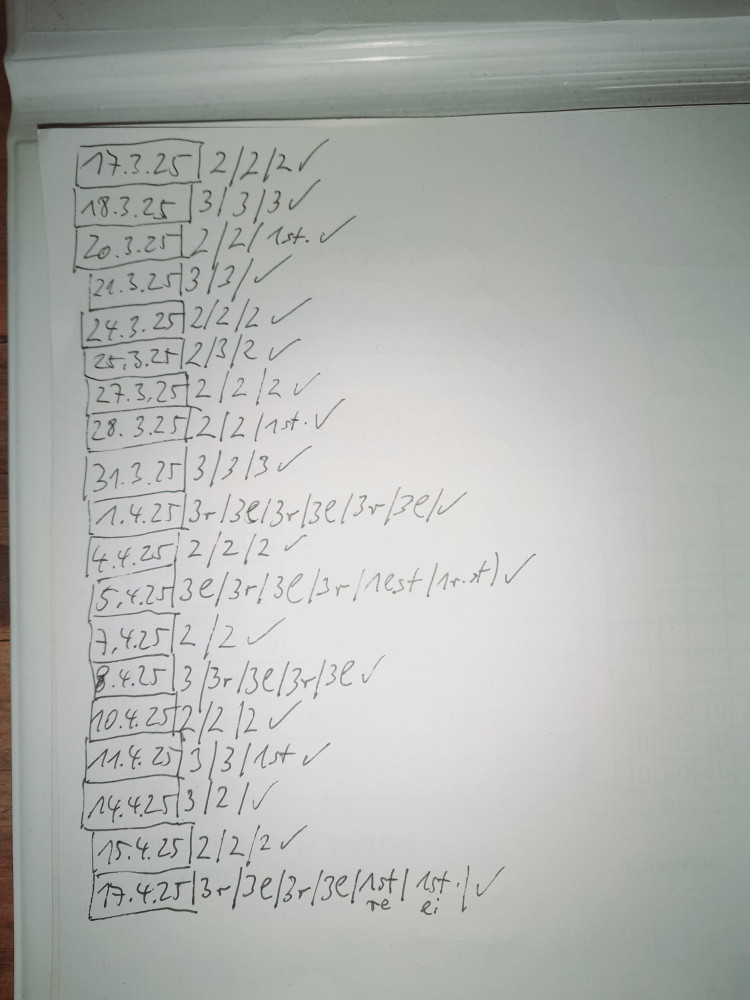 17.3.25 2/2/2✓
18.3.25 3/3/3✓
20.3.25 2/2/1st.✓
21.3.25 3/3/✓
24.3.25 2/2/2✓
25.3.25 2/3/2✓
27.3.25 2/2/2✓
28.3.25 2/2/1st.✓
31.3.25 3/3/3✓
1.4.25 3r/3l/3r/3l/3r/3l/✓
4.4.25 2/2/2✓
5.4.25 3l/3r/3l/3r/1lest/1r.st)✓
7.4.25 2/2✓
8.4.25 3/3r/3l/3r/3l✓
10.4.25 2/2/2✓
11.4.25 3/3/1st✓
14.4.25 3/2/✓
15.4.25 2/2/2✓
17.4.25 3r/3l/3r/3l/1st/1st./✓
re li